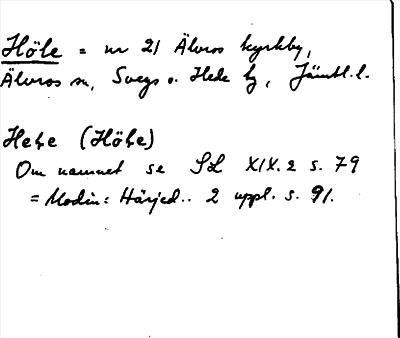 Höle = nr 21 Älvros kyrkby,
Älvros sn, Svegs o. Hede tg, Jämtl. l.
Hele (Höle)
Om namnet se SL XIX. 2 s. 79
= Modin: Härjed.. 2 uppl. s. 91.